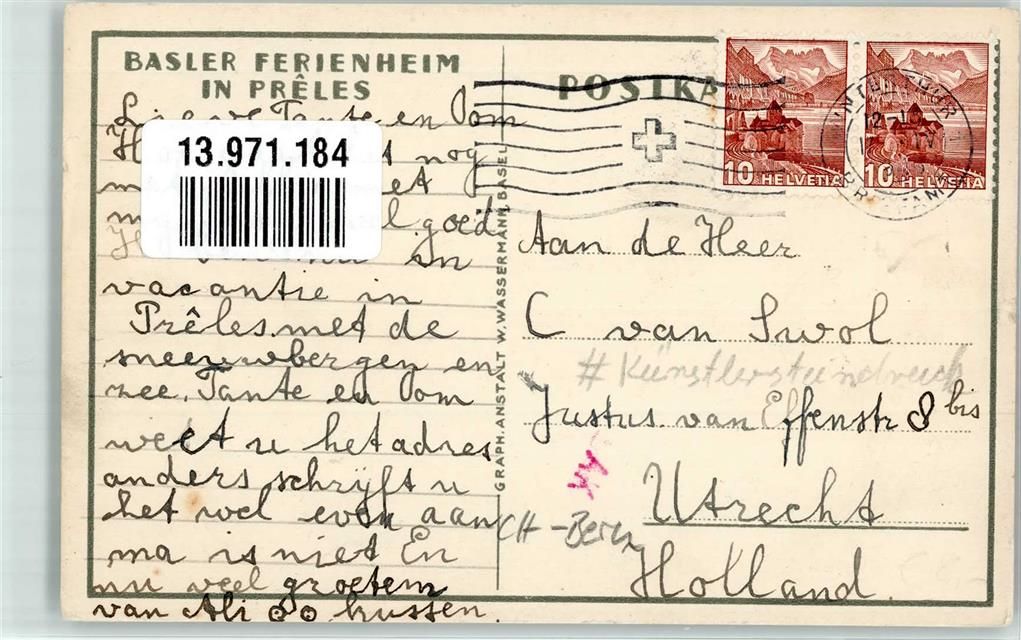 BASLER FERIENHEIM
IN PRÊLES
POSTKA
Lieve Tante en Oom
nog
13.971.184
goed
in
vacantie in
Prêles met de
sneeuwbergen en
zee. Tante en Oom
weet u het adres
anders schrijft u
het wel even aan
ma is niet En
nu veel groeten
van Ali 80 kussen.
GRAPH. ANSTALT W. WASSERMANN, BASEL
10 HELVETIA
10 HELVETIA
Aan de Heer
C van Swol
#Künstlersteindruck
Justus van Effenstr 8 bis
Utrecht
CH-Bern
Holland.